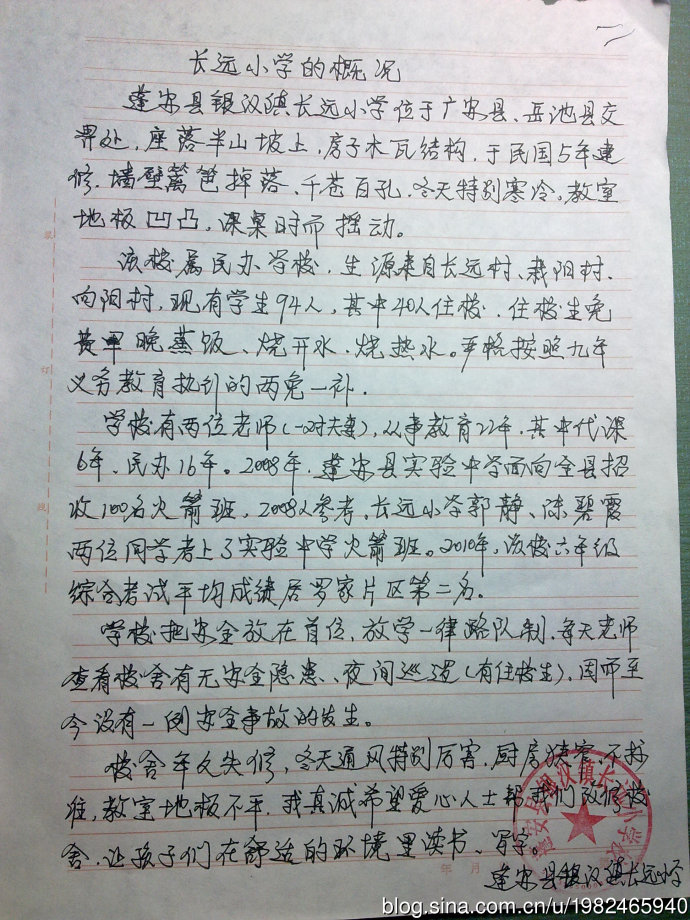 长远小学的概况
蓬安县银汉镇长远小学位于广安县、岳池县交
界处，座落半山坡上，房子木瓦结构，于民国5年建
修，墙壁篱笆掉落、千苍百孔，冬天特别寒冷，教室
地板凹凸，课桌时而摇动。
该校属民办学校，生源来自长远村、栽阳村、
向阳村，现有学生94人，其中40人住校，住校生免
费早晚蒸饭、烧开水、烧热水。严格按照九年
义务教育执行的两免一补.
学校有两位老师(一对夫妻)，从事教育22年，其中代课
6年、民办16年。2008年，蓬安县实验中学面向全县招
收100名火箭班，2008人参考，长远小学郭静、陈碧霞
两位同学考上了实验中学火箭班。2010年，该校六年级
综合考试平均成绩居罗家片区第二名。
学校把安全放在首位，放学一律路队制，每天老师
查看校舍有无安全隐患、夜间巡逻(有住校生)，因而至
今没有一例安全事故的发生。
校舍年久失修，冬天通风特别厉害，厨房狭窄，不标
准，教室地板不平，我真诚希望爱心人士帮我们改修校
舍，让孩子们在舒适的环境里读书、写字。
蓬安县银汉镇长远小学
年 月
装
订
线
blog.sina.com.cn/u/1982465940